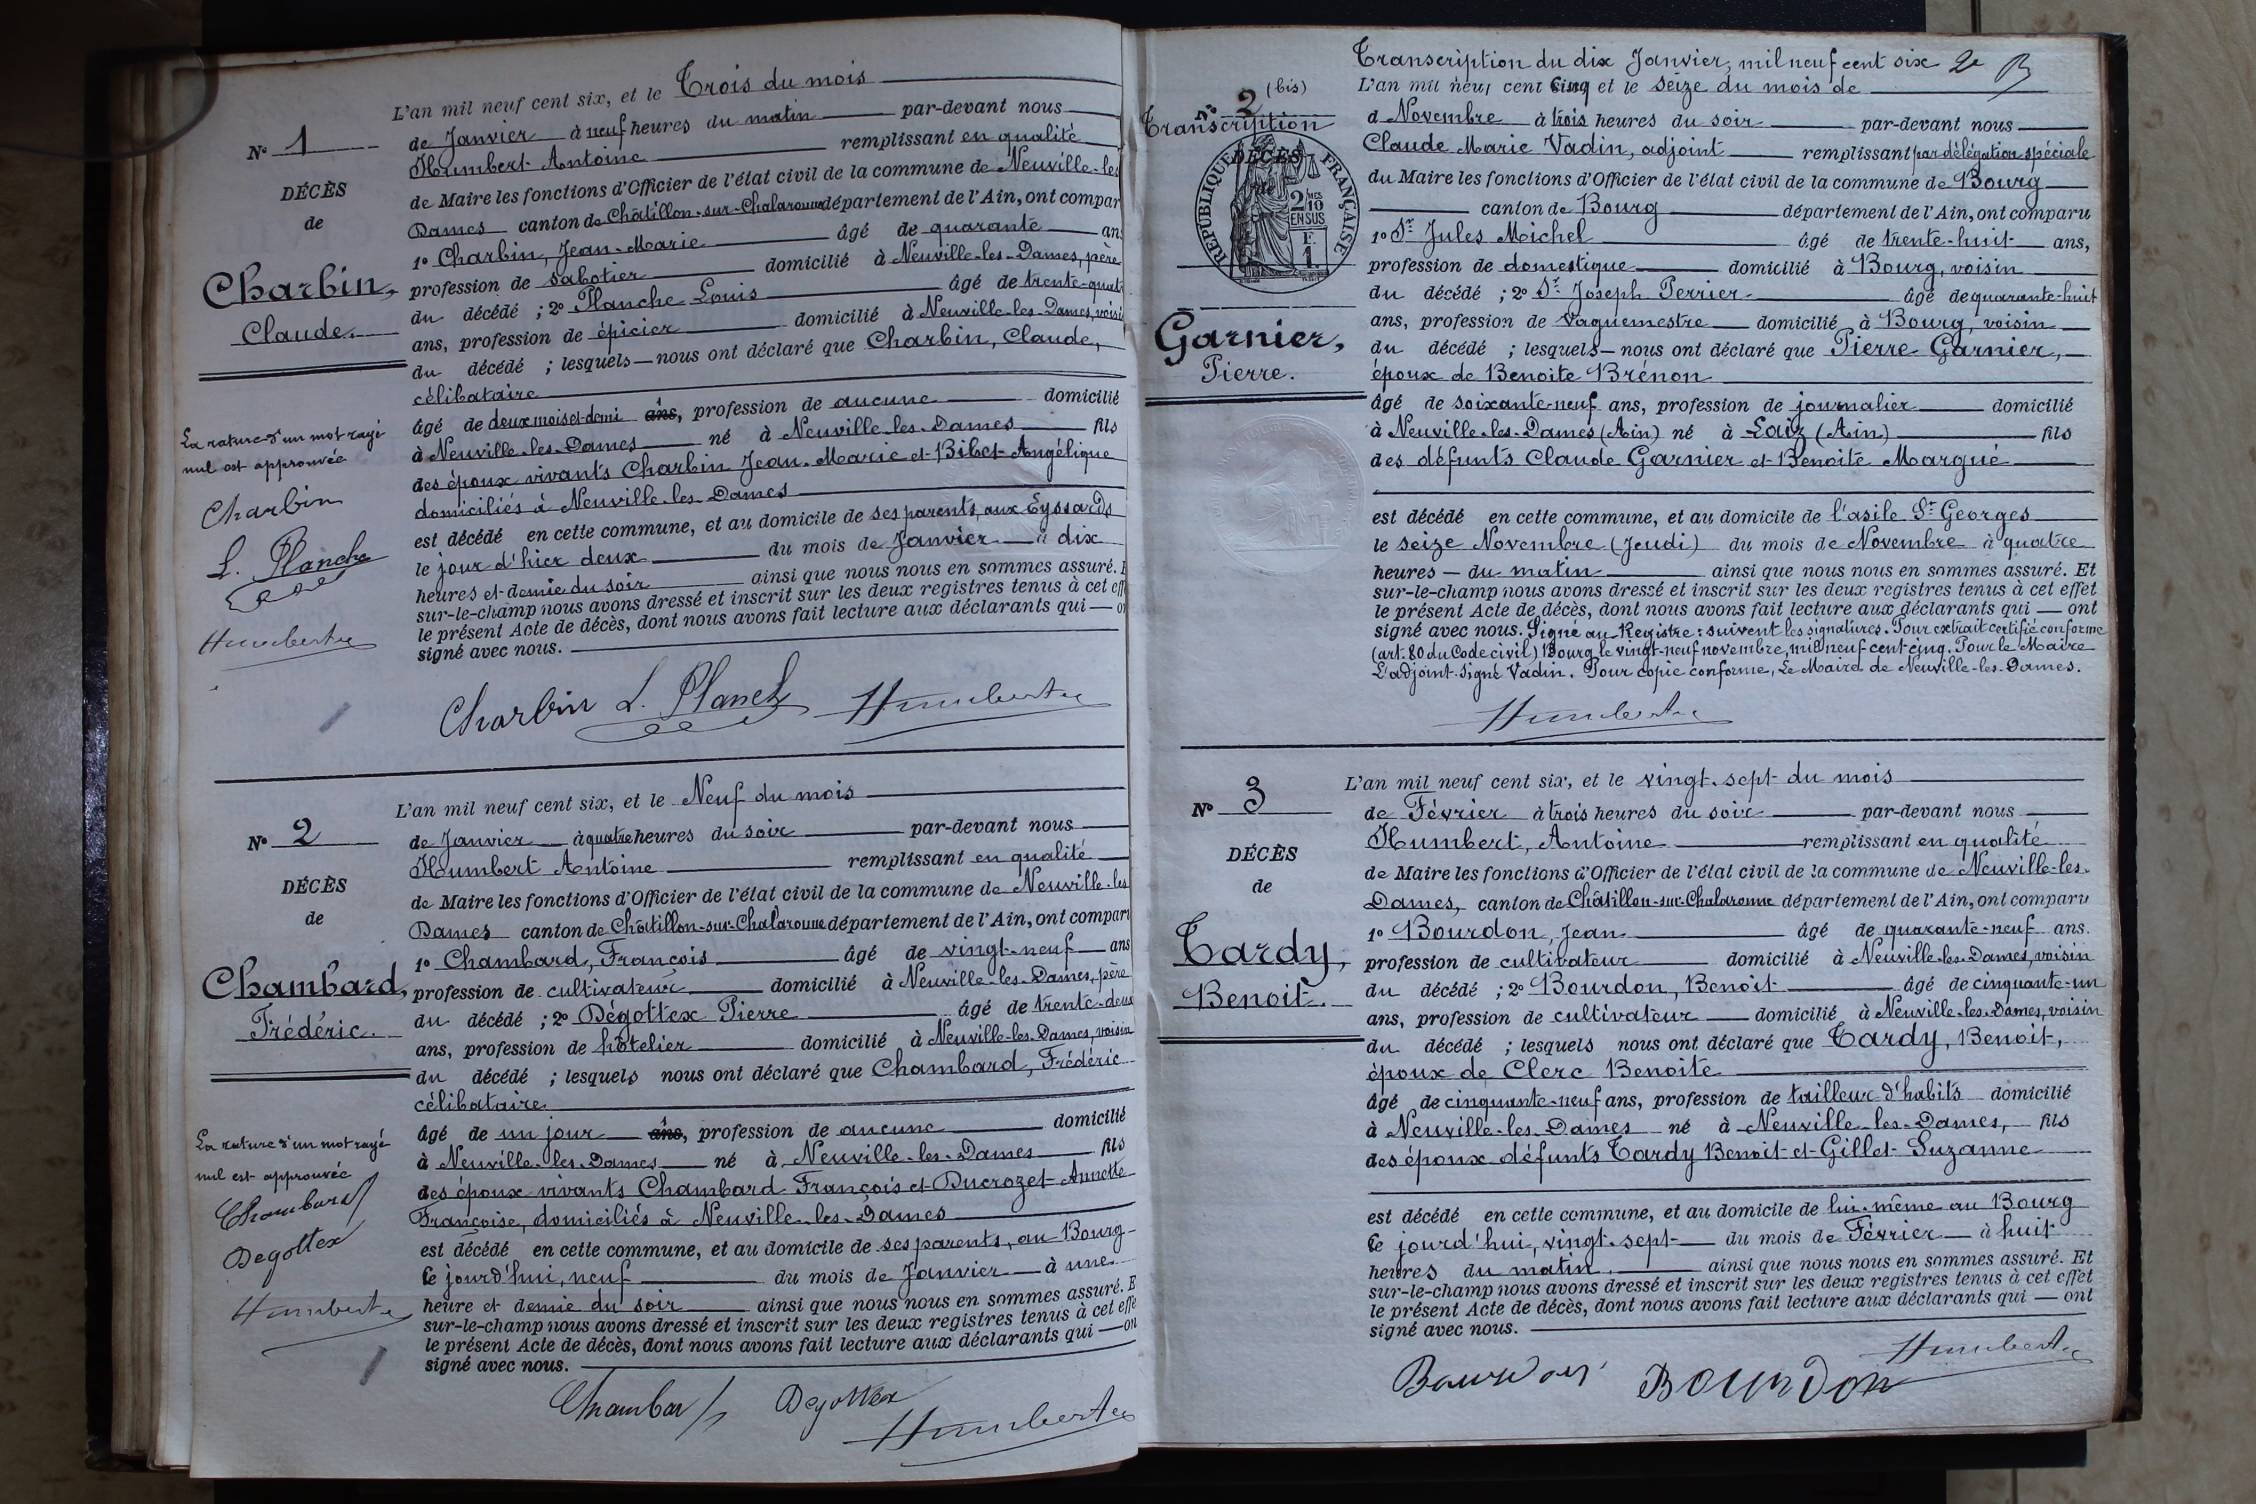 L'an mil neuf cent six, et le Trois du mois
N° 1
de Janvier à neuf heures du matin par-devant nous
Humbert Antoine remplissant en qualité
DÉCÈS
de Maire les fonctions d'Officier de l'état civil de la commune de Neuville-les
de
Dames canton de Châtillon-sur-Chalaronne département de l'Ain, ont compar
1° Charbin, Jean-Marie âgé de quarante ans
Charbin,
profession de sabotier domicilié à Neuville-les-Dames, père
du décédé ; 2° Planche Louis âgé de trente-quat
Claude.
ans, profession de épicier domicilié à Neuville-les-Dames, voisi
du décédé ; lesquels nous ont déclaré que Charbin, Claude,
célibataire
âgé de deux mois et demi ans, profession de aucune domicilié
La rature d'un mot rayé
à Neuville-les-Dames né à Neuville-les-Dames fils
nul est approuvée
des époux vivants Charbin Jean-Marie et Bibet Angélique
Charbin
domiciliés à Neuville-les-Dames
est décédé en cette commune, et au domicile de ses parents, aux Eyssards
L. Planche
le jour d'hier deux du mois de Janvier à dix
heures et demie du soir ainsi que nous nous en sommes assuré. E
sur-le-champ nous avons dressé et inscrit sur les deux registres tenus à cet eff
Humbert
le présent Acte de décès, dont nous avons fait lecture aux déclarants qui — on
signé avec nous.
Charbin L. Planch Humbert
L'an mil neuf cent six, et le Neuf du mois
N° 2
de Janvier à quatre heures du soir par-devant nous
Humbert Antoine remplissant en qualité
DÉCÈS
de Maire les fonctions d'Officier de l'état civil de la commune de Neuville-les
de
Dames canton de Châtillon-sur-Chalaronne département de l'Ain, ont compar
1° Chambard, François âgé de vingt-neuf ans
Chambard,
profession de cultivateur domicilié à Neuville-les-Dames, père
du décédé ; 2° Dégottex Pierre âgé de trente-deux
Frédéric.
ans, profession de hôtelier domicilié à Neuville-les-Dames, voisin
du décédé ; lesquels nous ont déclaré que Chambard, Frédéric
célibataire
âgé de un jour ans, profession de aucune domicilié
La rature d'un mot rayé
à Neuville-les-Dames né à Neuville-les-Dames fils
nul est approuvée
des époux vivants Chambard François et Ducrozet Annette
Chambard
Françoise, domiciliés à Neuville-les-Dames
Degottex
est décédé en cette commune, et au domicile de ses parents, au Bourg
ce jourd'hui, neuf du mois de Janvier à une
Humbert
heure et demie du soir ainsi que nous nous en sommes assuré. E
sur-le-champ nous avons dressé et inscrit sur les deux registres tenus à cet effe
le présent Acte de décès, dont nous avons fait lecture aux déclarants qui — on
signé avec nous.
Chambar Degottex
Humbert
Transcription du dix Janvier, mil neuf cent six 2e
L'an mil neuf cent cinq et le seize du mois de
N° 2 (bis)
Transcription
d Novembre à trois heures du soir par-devant nous
DÉCÈS
de
Claude Marie Vadin, adjoint remplissant par délégation spéciale
RÉPUBLIQUE FRANÇAISE
2/10 EN SUS
F. 1
du Maire les fonctions d'Officier de l'état civil de la commune de Bourg
canton de Bourg département de l'Ain, ont comparu
1° Sr Jules Michel âgé de trente-huit ans,
profession de domestique domicilié à Bourg, voisin
du décédé ; 2° Sr Joseph Perrier âgé de quarante-huit
ans, profession de vaguemestre domicilié à Bourg, voisin
Garnier,
du décédé ; lesquels nous ont déclaré que Pierre Garnier,
Pierre.
époux de Benoite Brénon
âgé de soixante-neuf ans, profession de journalier domicilié
à Neuville-les-Dames (Ain) né à Laiz (Ain) fils
des défunts Claude Garnier et Benoite Margué
est décédé en cette commune, et au domicile de l'asile St Georges
le seize Novembre (Jeudi) du mois de Novembre à quatre
heures — du matin ainsi que nous nous en sommes assuré. Et
sur-le-champ nous avons dressé et inscrit sur les deux registres tenus à cet effet
le présent Acte de décès, dont nous avons fait lecture aux déclarants qui — ont
signé avec nous. Signé au Registre : suivent les signatures. Pour extrait certifié conforme
(art. 80 du Code civil) Bourg le vingt-neuf novembre, mil neuf cent cinq. Pour le Maire
L'adjoint. Signé Vadin. Pour copie conforme, Le Maire de Neuville-les-Dames.
Humbert
L'an mil neuf cent six, et le vingt-sept du mois
N° 3
de Février à trois heures du soir par-devant nous
Humbert, Antoine remplissant en qualité
DÉCÈS
de Maire les fonctions d'Officier de l'état civil de la commune de Neuville-les-
de
Dames, canton de Châtillon-sur-Chalaronne département de l'Ain, ont comparu
1° Bourdon, Jean âgé de quarante-neuf ans.
Tardy,
profession de cultivateur domicilié à Neuville-les-Dames, voisin
du décédé ; 2° Bourdon, Benoit âgé de cinquante-un
Benoit.
ans, profession de cultivateur domicilié à Neuville-les-Dames, voisin
du décédé ; lesquels nous ont déclaré que Tardy, Benoit,
époux de Clerc Benoite
âgé de cinquante-neuf ans, profession de tailleur d'habits domicilié
à Neuville-les-Dames né à Neuville-les-Dames, fils
des époux défunts Tardy Benoit et Gillet Suzanne
est décédé en cette commune, et au domicile de lui-même au Bourg
ce jourd'hui, vingt-sept du mois de Février à huit
heures du matin. ainsi que nous nous en sommes assuré. Et
sur-le-champ nous avons dressé et inscrit sur les deux registres tenus à cet effet
le présent Acte de décès, dont nous avons fait lecture aux déclarants qui — ont
signé avec nous.
Humbert
Bourdon BOURDON